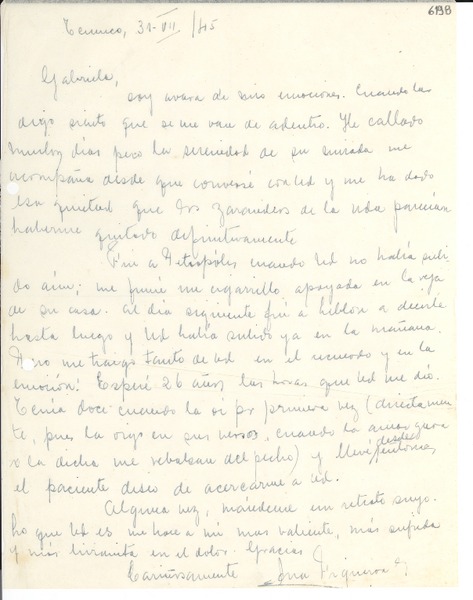 6198
Temuco, 31-VII /45
Gabriela,
soy avara de mis emociones. Cuando las
digo siento que se me van de adentro. He callado
muchos días pero la serenidad de su mirada me
acompaña desde que conversé con Ud y me ha dado
esa quietud que los zarandeos de la vida parecían
haberme quitado definitivamente.
Fui a Petrópolis cuando Ud no había subi-
do aún; me fumé un cigarrillo apoyada en la reja
de su casa. Al día siguiente fuí a decirle
hasta luego y Ud había salido ya en la mañana.
Pero me traigo tanto de Ud en el recuerdo y en la
emoción! Esperé 26 años las horas que Ud me dió.
Tenía doce cuando la oí por primera vez (directamen-
te, pues la oigo en sus versos, cuando la amargura
o la dicha me rebalsan del pecho) y llevé desde entonces
el paciente deseo de acercarme a Ud.
Alguna vez, mándeme un retrato suyo.
Lo que Ud es me hace a mí mas valiente, más sufrida
y más livianita en el dolor. Gracias
Cariñosamente Ana Figueroa G